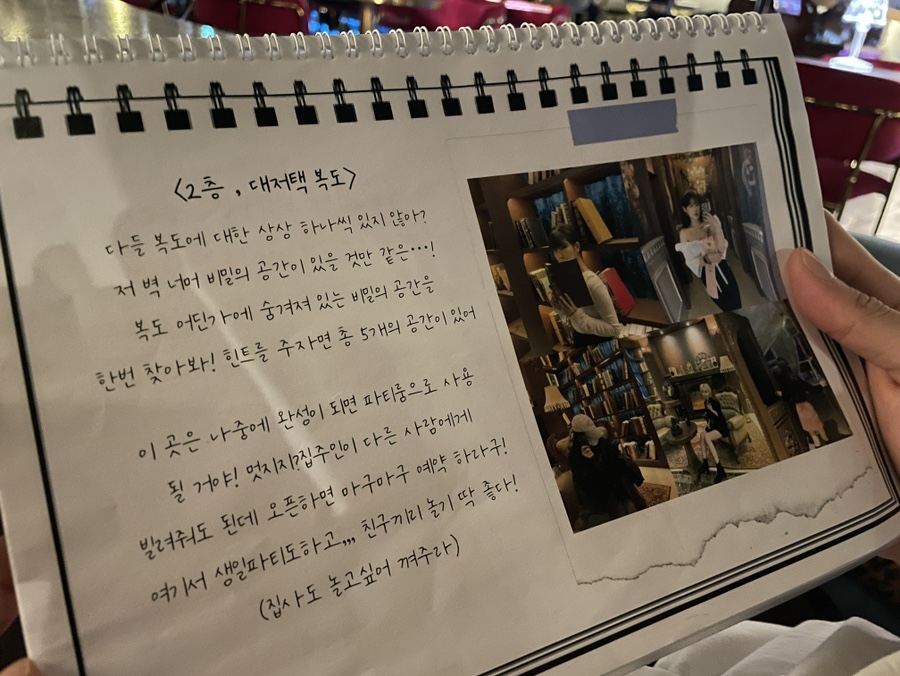 <2층, 대저택 복도>
다들 복도에 대한 상상 하나씩 있지 않아?
저 벽 너머 비밀의 공간이 있을 것만 같은…!
복도 어딘가에 숨겨져 있는 비밀의 공간을
한번 찾아봐! 힌트를 주자면 총 5개의 공간이 있어
이 곳은 나중에 완성이 되면 파티룸으로 사용
될 거야! 멋지지?집주인이 다른 사람에게
빌려줘도 된데 오픈하면 마구마구 예약 하라구!
여기서 생일파티도하고,,, 친구끼리 놀기 딱 좋다!
(집사도 놀고싶어 껴주라)